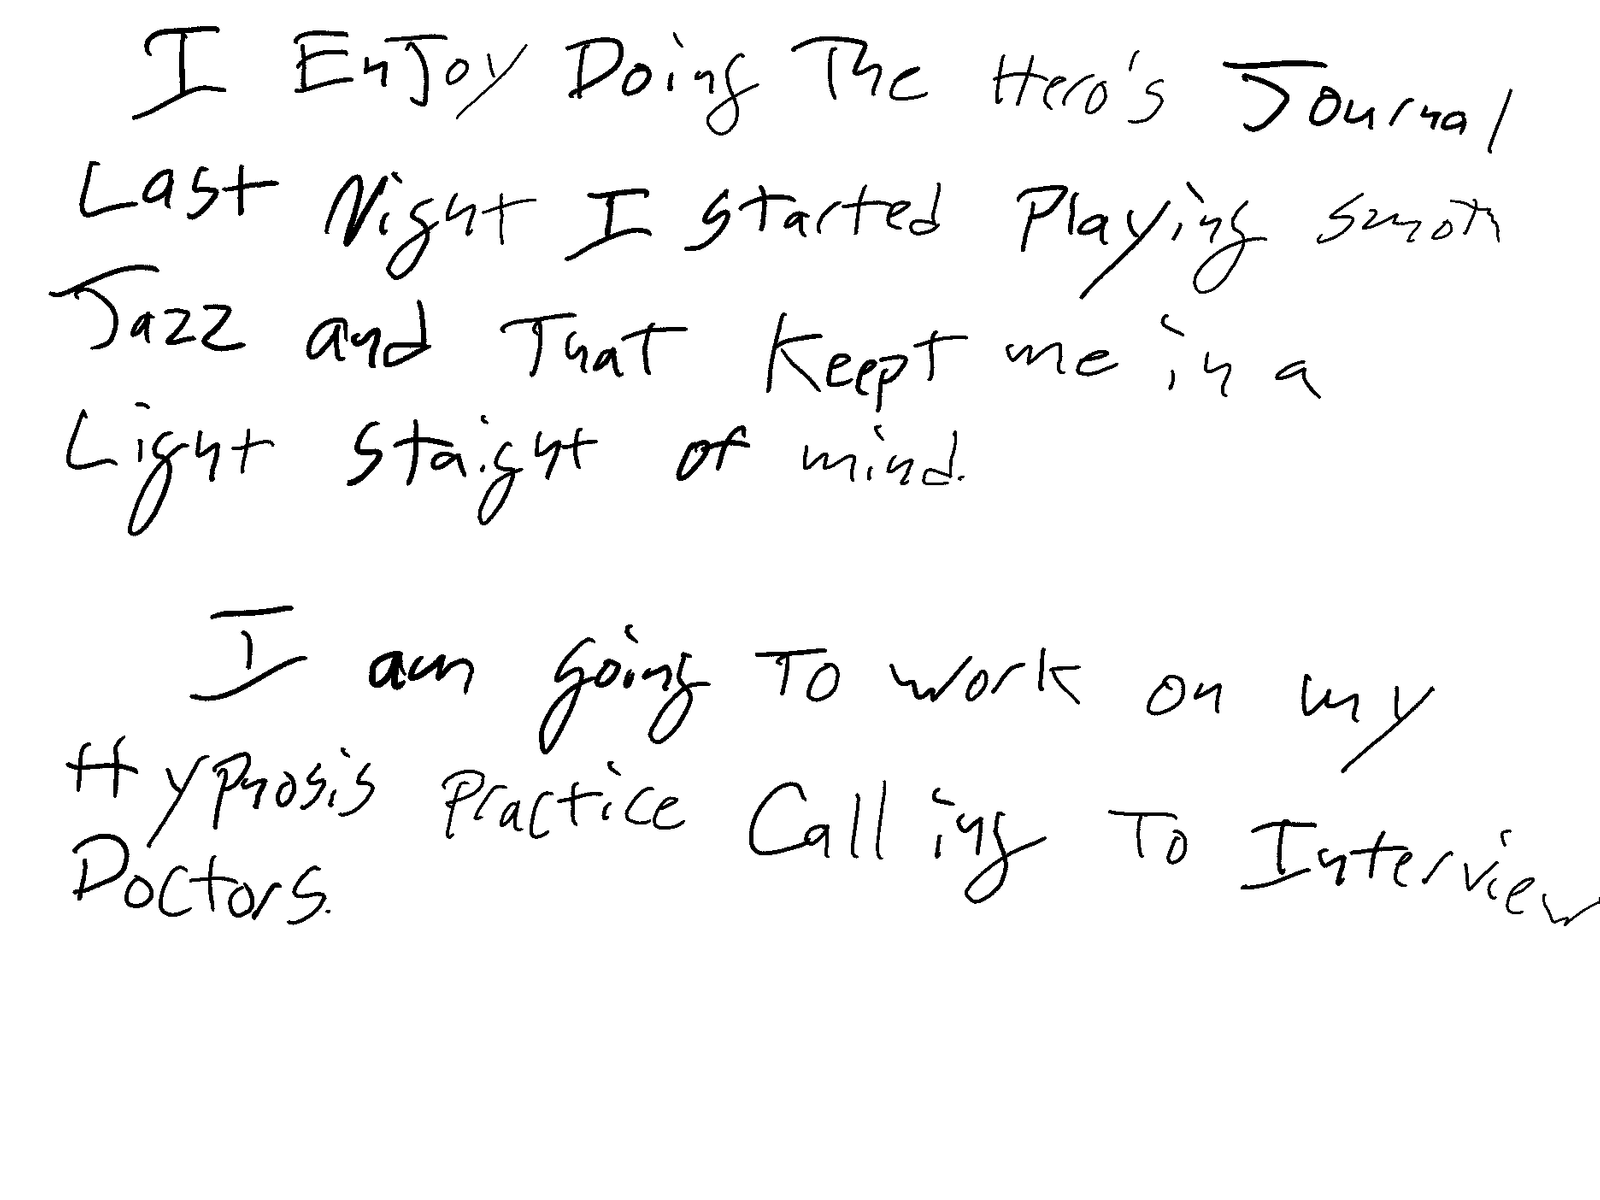 I Enjoy Doing The Hero's Journal
Last Night I started Playing smoth
Jazz and That Keept me in a
Light staight of mind.
I am going To work on my
Hypnosis Practice Calling To Interview
Doctors.